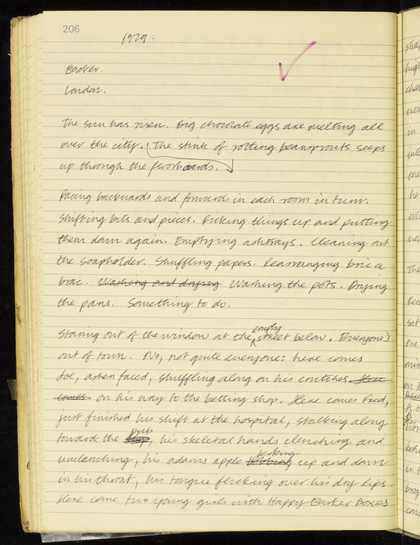 206
1929.
Booker.
London.
The sun has risen. Big chocolate eggs are melting all
over the city. The stink of rotting beansprouts seeps
up through the floorboards.
Pacing backwards and forwards in each room in turn.
Shifting bits and pieces. Picking things up and putting
them down again. Emptying ashtrays. Cleaning out
the soapholder. Shuffling papers. Rearranging bric a
brac. Washing and drying Washing the pots. Drying
the pans. Something to do.
Staring out of the window at the empty street below. Everyone's
out of town. No, not quite everyone: here comes
Joe, ashen faced, shuffling along on his crutches. Here
comes on his way to the betting shop. Here comes Fred,
just finished his shift at the hospital, stalking along
toward the pub, his skeletal hands clenching and
unclenching, his adams apple bobbing up and down
in his throat, his tongue flicking over his dry lips
Here come two young girls with Happy Easter Boxes